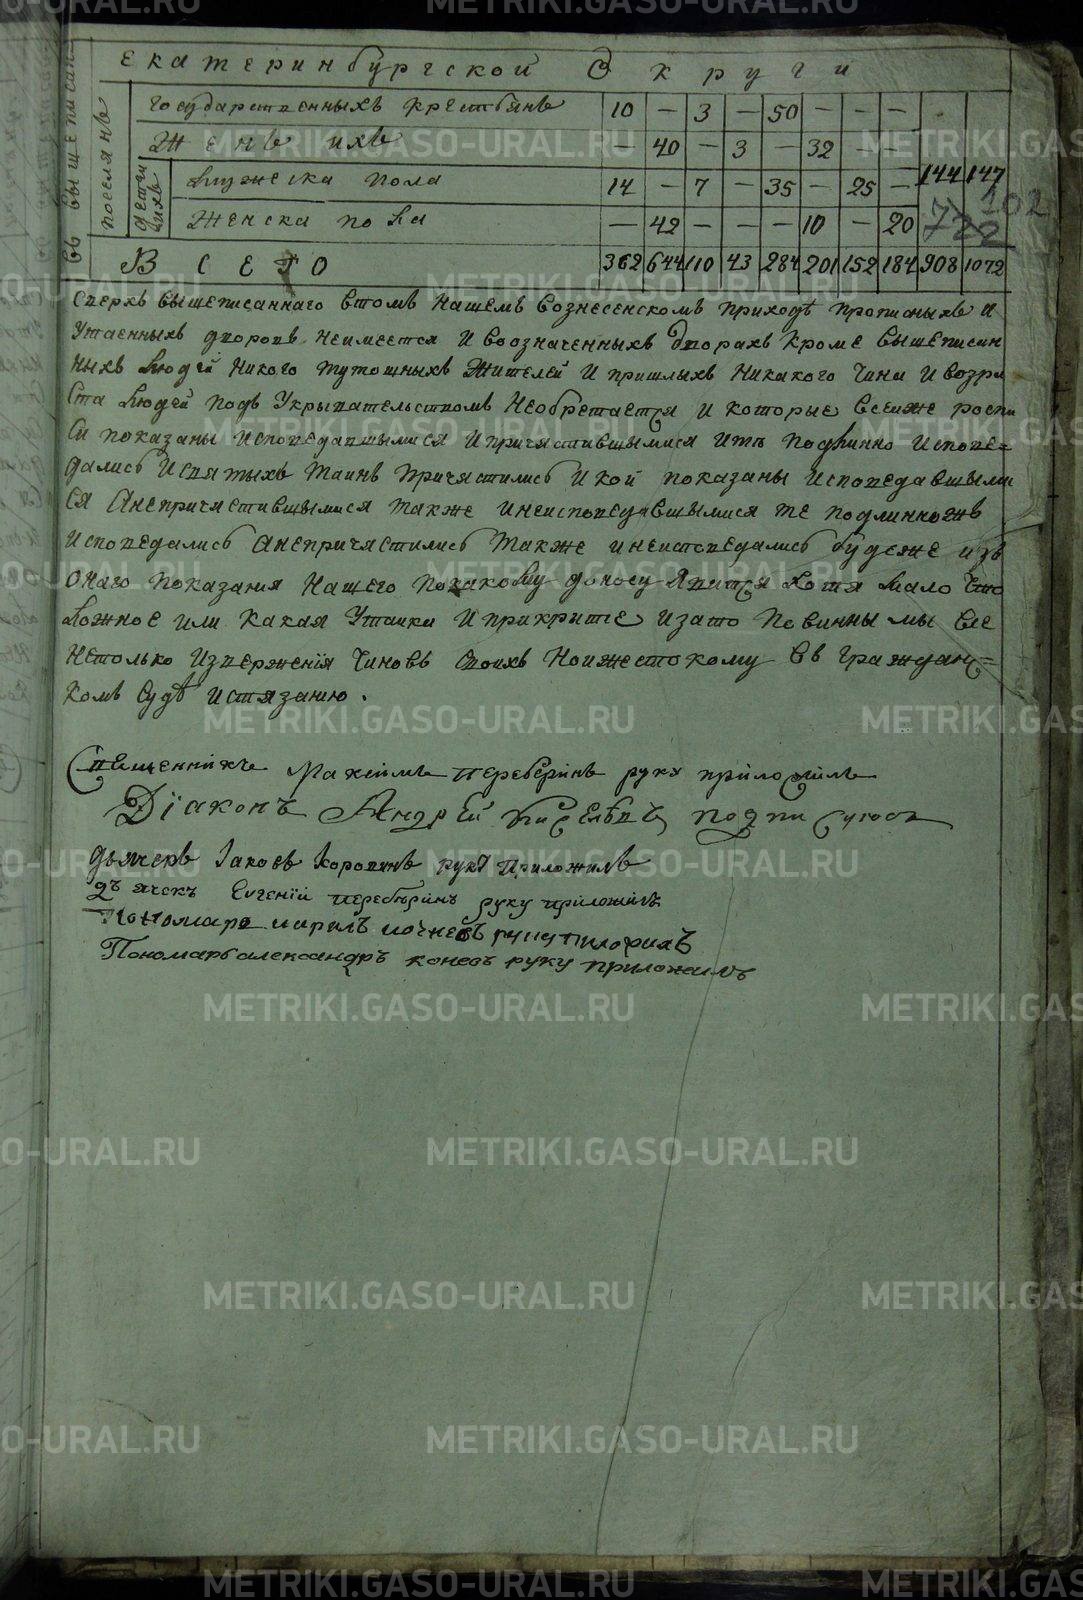 Екатеринбургской Округи
въ вышеписан
поселянъ
Государственныхъ крестьянъ 10 — 3 — 50 — — —
Женъ ихъ — 40 — 3 — 32 — —
дети ихъ
Мужеска пола 14 — 7 — 35 — 25 — 144 147
Женска пола — 42 — — — 10 — 20
102
722
Всего 362 644 110 43 284 201 152 184 908 1072
сверхъ вышеписаннаго втомъ нашемъ вознесенскомъ приходѣ прописныхъ и
утаенныхъ дворовъ неимеется и воозначенныхъ дворахъ кроме вышеписан
ныхъ людей никого тутошныхъ жителей и пришлыхъ никакого чина и возра
ста людей подъ укрывательствомъ необретается и которые всейже роспи
си показаны исповедавшымися ипричастившымися итѣ подлинно испове=
дались исвятыхъ таинъ причястились и кои показаны исповедавшыми
ся анепричястившымися также инеисповедавшымися те подлинножъ
исповедались анепричястились также инеисповедались будеже изъ
онаго показания нашего покакому доносу явится хотя мало что
ложное или какая утайка иприкрите изато повинны мы все
нетолько извержения чиновъ своихъ ноижестокому въ граждан=
комъ судѣ истязанию.
Священникъ Максимъ Переберинъ руку приложилъ
Дїаконъ Андрей подписуюся
дьячекъ Іаковъ Коровинъ руку приложилъ
дъячекъ Евгений Переберинъ руку приложилъ
Пономарь Кирилъ Кочневъ руку приложилъ
Пономарь александръ коневъ руку приложилъ
METRIKI.GASO-URAL.RU